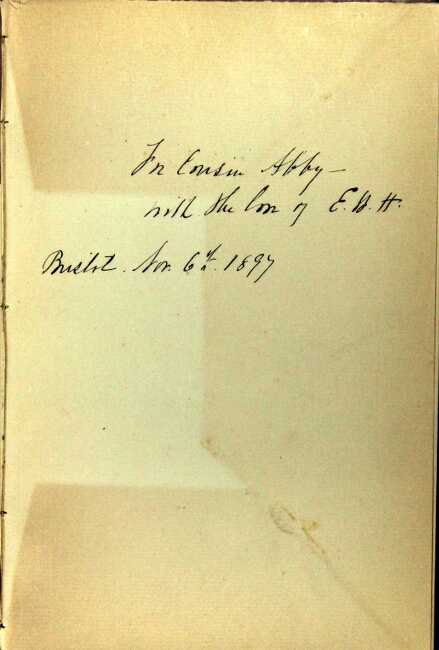 For Cousin Abby —
with the love of E. B. H.
Bristol. Nov. 6th. 1897